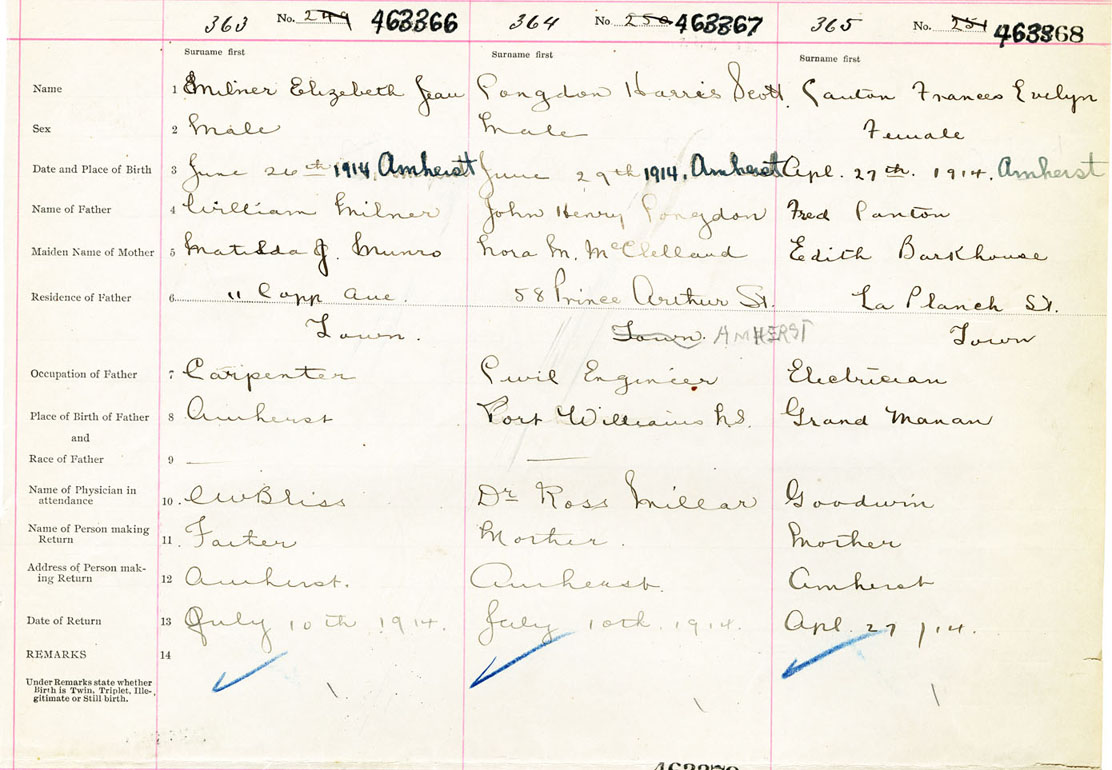 363 No. 249 463366 364 No. 250 463367 365 No. 251 463368
Surname first Surname first Surname first
Name 1 Milner Elizebeth Jean Longdon Harris Scott. Panton Frances Evelyn
Sex 2 Male Male Female
Date and Place of Birth 3 June 26th 1914, Amherst June 29th 1914, Amherst Apl. 27th. 1914. Amherst
Name of Father 4 William Milner John Henry Longdon Fred Panton
Maiden Name of Mother 5 Matilda J. Munro Nora M. McClelland Edith Barkhouse
Residence of Father 6 11 Copp Ave. 58 Prince Arthur St. La Planch St.
Town. Town. AMHERST Town
Occupation of Father 7 Carpenter Civil Engineer Electrician
Place of Birth of Father 8 Amherst Port Williams N.S. Grand Manan
and
Race of Father 9
Name of Physician in
attendance 10. CW Bliss Dr Ross Millar Goodwin
Name of Person making
Return 11. Father Mother. Mother
Address of Person mak-
ing Return 12 Amherst. Amherst. Amherst
Date of Return 13 July 10th 1914. July 10th. 1914. Apl. 27/14.
REMARKS 14
Under Remarks state whether
Birth is Twin, Triplet, Ille-
gitimate or Still birth.